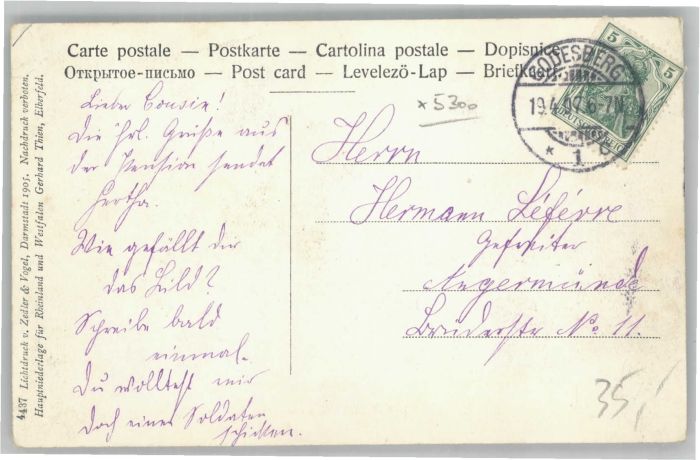 Carte postale — Postkarte — Cartolina postale — Dopisnice
Открытое-письмо — Post card — Levelező-Lap — Briefkaart
4437 Lichtdruck v. Zedler & Vogel, Darmstadt 1905. Nachdruck verboten.
Hauptniederlage für Rheinland und Westfalen Gerhard Thien, Elberfeld.
×5300
GODESBERG
19.4.07. 6-7N.
* 1
5 5
DEUTSCHES REICH
Lieber Cousin!
Die hrl. Grüße aus
der Pension sendet
Hertha.
Wie gefällt dir
das Bild?
Schreibe bald
einmal.
Du wolltest mir
doch einen Soldaten
schicken.
Herrn
Hermann Léfévre
Gefreiter
Angermünde
Brüderstr No. 11.
35,